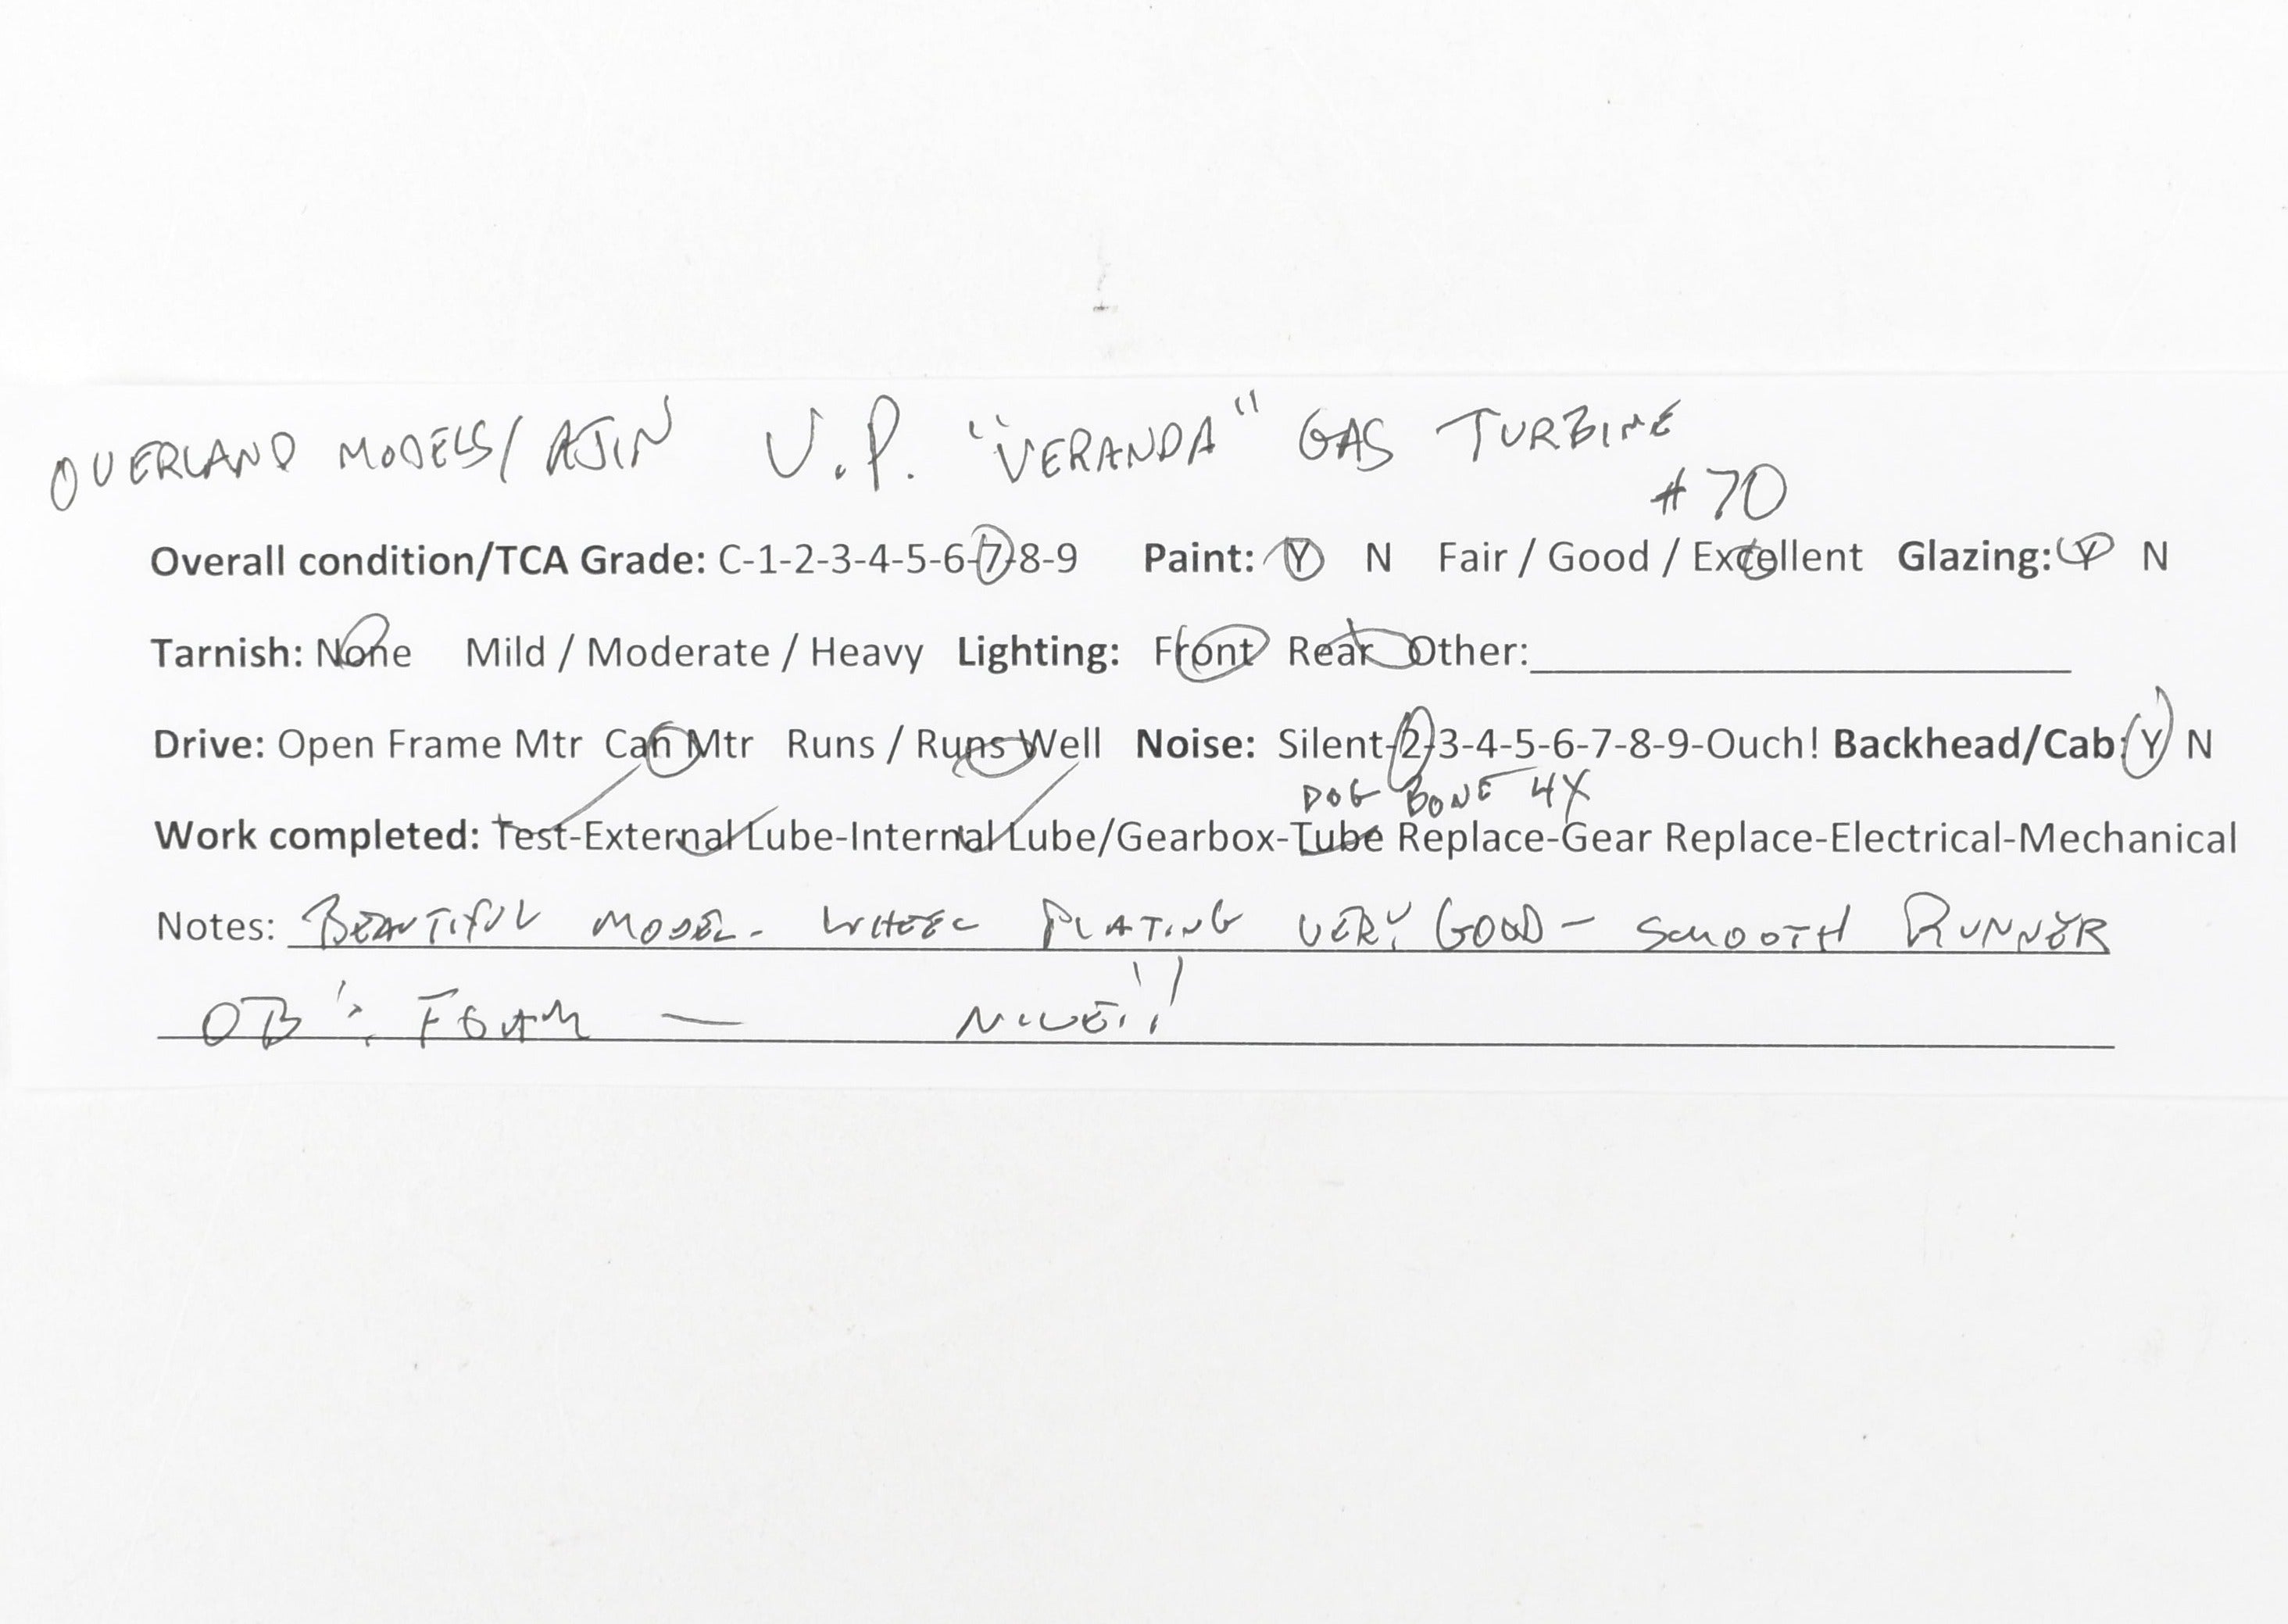 OVERLAND MODELS/AJIN U.P. "VERANDA" GAS TURBINE
#70
Overall condition/TCA Grade: C-1-2-3-4-5-6-7-8-9 Paint: Y N Fair / Good / Excellent Glazing: Y N
Tarnish: None Mild / Moderate / Heavy Lighting: Front Rear Other:
Drive: Open Frame Mtr Can Mtr Runs / Runs Well Noise: Silent-2-3-4-5-6-7-8-9-Ouch! Backhead/Cab: Y N
DOG BONE 4X
Work completed: Test-External Lube-Internal Lube/Gearbox-Tube Replace-Gear Replace-Electrical-Mechanical
Notes: BEAUTIFUL MODEL. WHEEL PLATING VERY GOOD - SMOOTH RUNNER
OB: FOAM — NICE!!